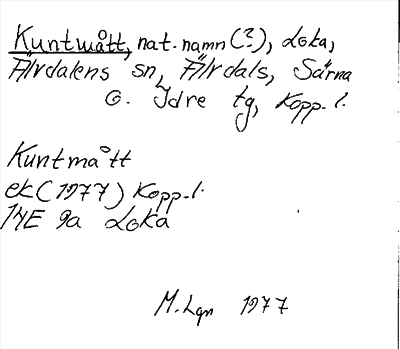 Kuntmått, nat. namn (?), Loka,
Älvdalens sn, Älvdals, Särna
o. Idre tg, Kopp. l.
Kuntmått
ek (1977) Kopp. l.
14E 9a Loka
M. Lgn 1977